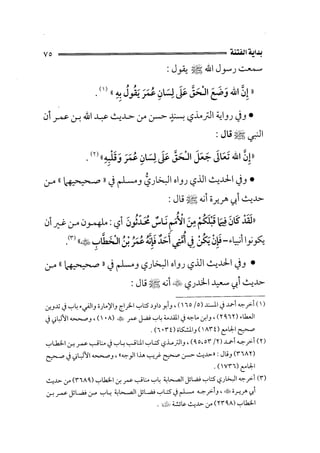 بداية الفتنة ٧٥
سمعت رسول الله ﷺ يقول :
«إِنَّ الله وَضَعَ الْحَقَّ عَلَى لِسَانِ عُمَرَ يَقُولُ بِهِ» (١).
• وفي رواية الترمذي بسندٍ حسن من حديث عبد الله بن عمر أن
النبي ﷺ قال :
«إِنَّ اللهَ تَعَالَى جَعَلَ الْحَقَّ عَلَى لِسَانِ عُمَرَ وَقَلْبِهِ» (٢).
• وفي الحديث الذي رواه البخاريُّ ومسلم في «صحيحيهما» من
حديث أبي هريرة أنه ﷺ قال :
«لَقَدْ كَانَ فِيمَا قَبْلَكُمْ مِنَ الْأُمَمِ نَاسٌ مُحَدَّثُونَ أي : ملهمون من غير أن
يكونوا أنبياء- فَإِنْ يَكُنْ فِي أُمَّتِي أَحَدٌ فَإِنَّهُ عُمَرُ بْنُ الْخَطَّابِ» (٣).
• وفي الحديث الذي رواه البخاري ومسلم في «صحيحيهما» من
حديث أبي سعيد الخدري أنه ﷺ قال :
(١) أخرجه أحمد في المسند (٥/ ١٦٥)، وأبو داود كتاب الخراج والإمارة والفيء باب في تدوين
العطاء (٢٩٦٢)، وابن ماجه في المقدمة باب فضل عمر (١٠٨)، وصححه الألباني في
صحيح الجامع (١٨٣٤) والمشكاة (٦٠٣٤).
(٢) أخرجه أحمد (٢/ ٥٣، ٩٥)، والترمذي كتاب المناقب باب في مناقب عمر بن الخطاب
(٣٦٨٢) وقال: «حديث حسن صحيح غريب هذا الوجه»، وصححه الألباني في صحيح
الجامع (١٧٣٦).
(٣) أخرجه البخاري كتاب فضائل الصحابة باب مناقب عمر بن الخطاب (٣٦٨٩) من حديث
أبي هريرة ، وأخرجه مسلم في كتاب فضائل الصحابة باب من فضائل عمر بن
الخطاب (٢٣٩٨) من حديث عائشة .